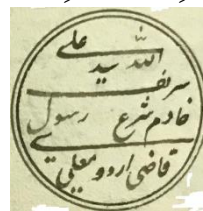 الله سید علی
شریف
خادم شرع رسول
قاضی اردو معلی